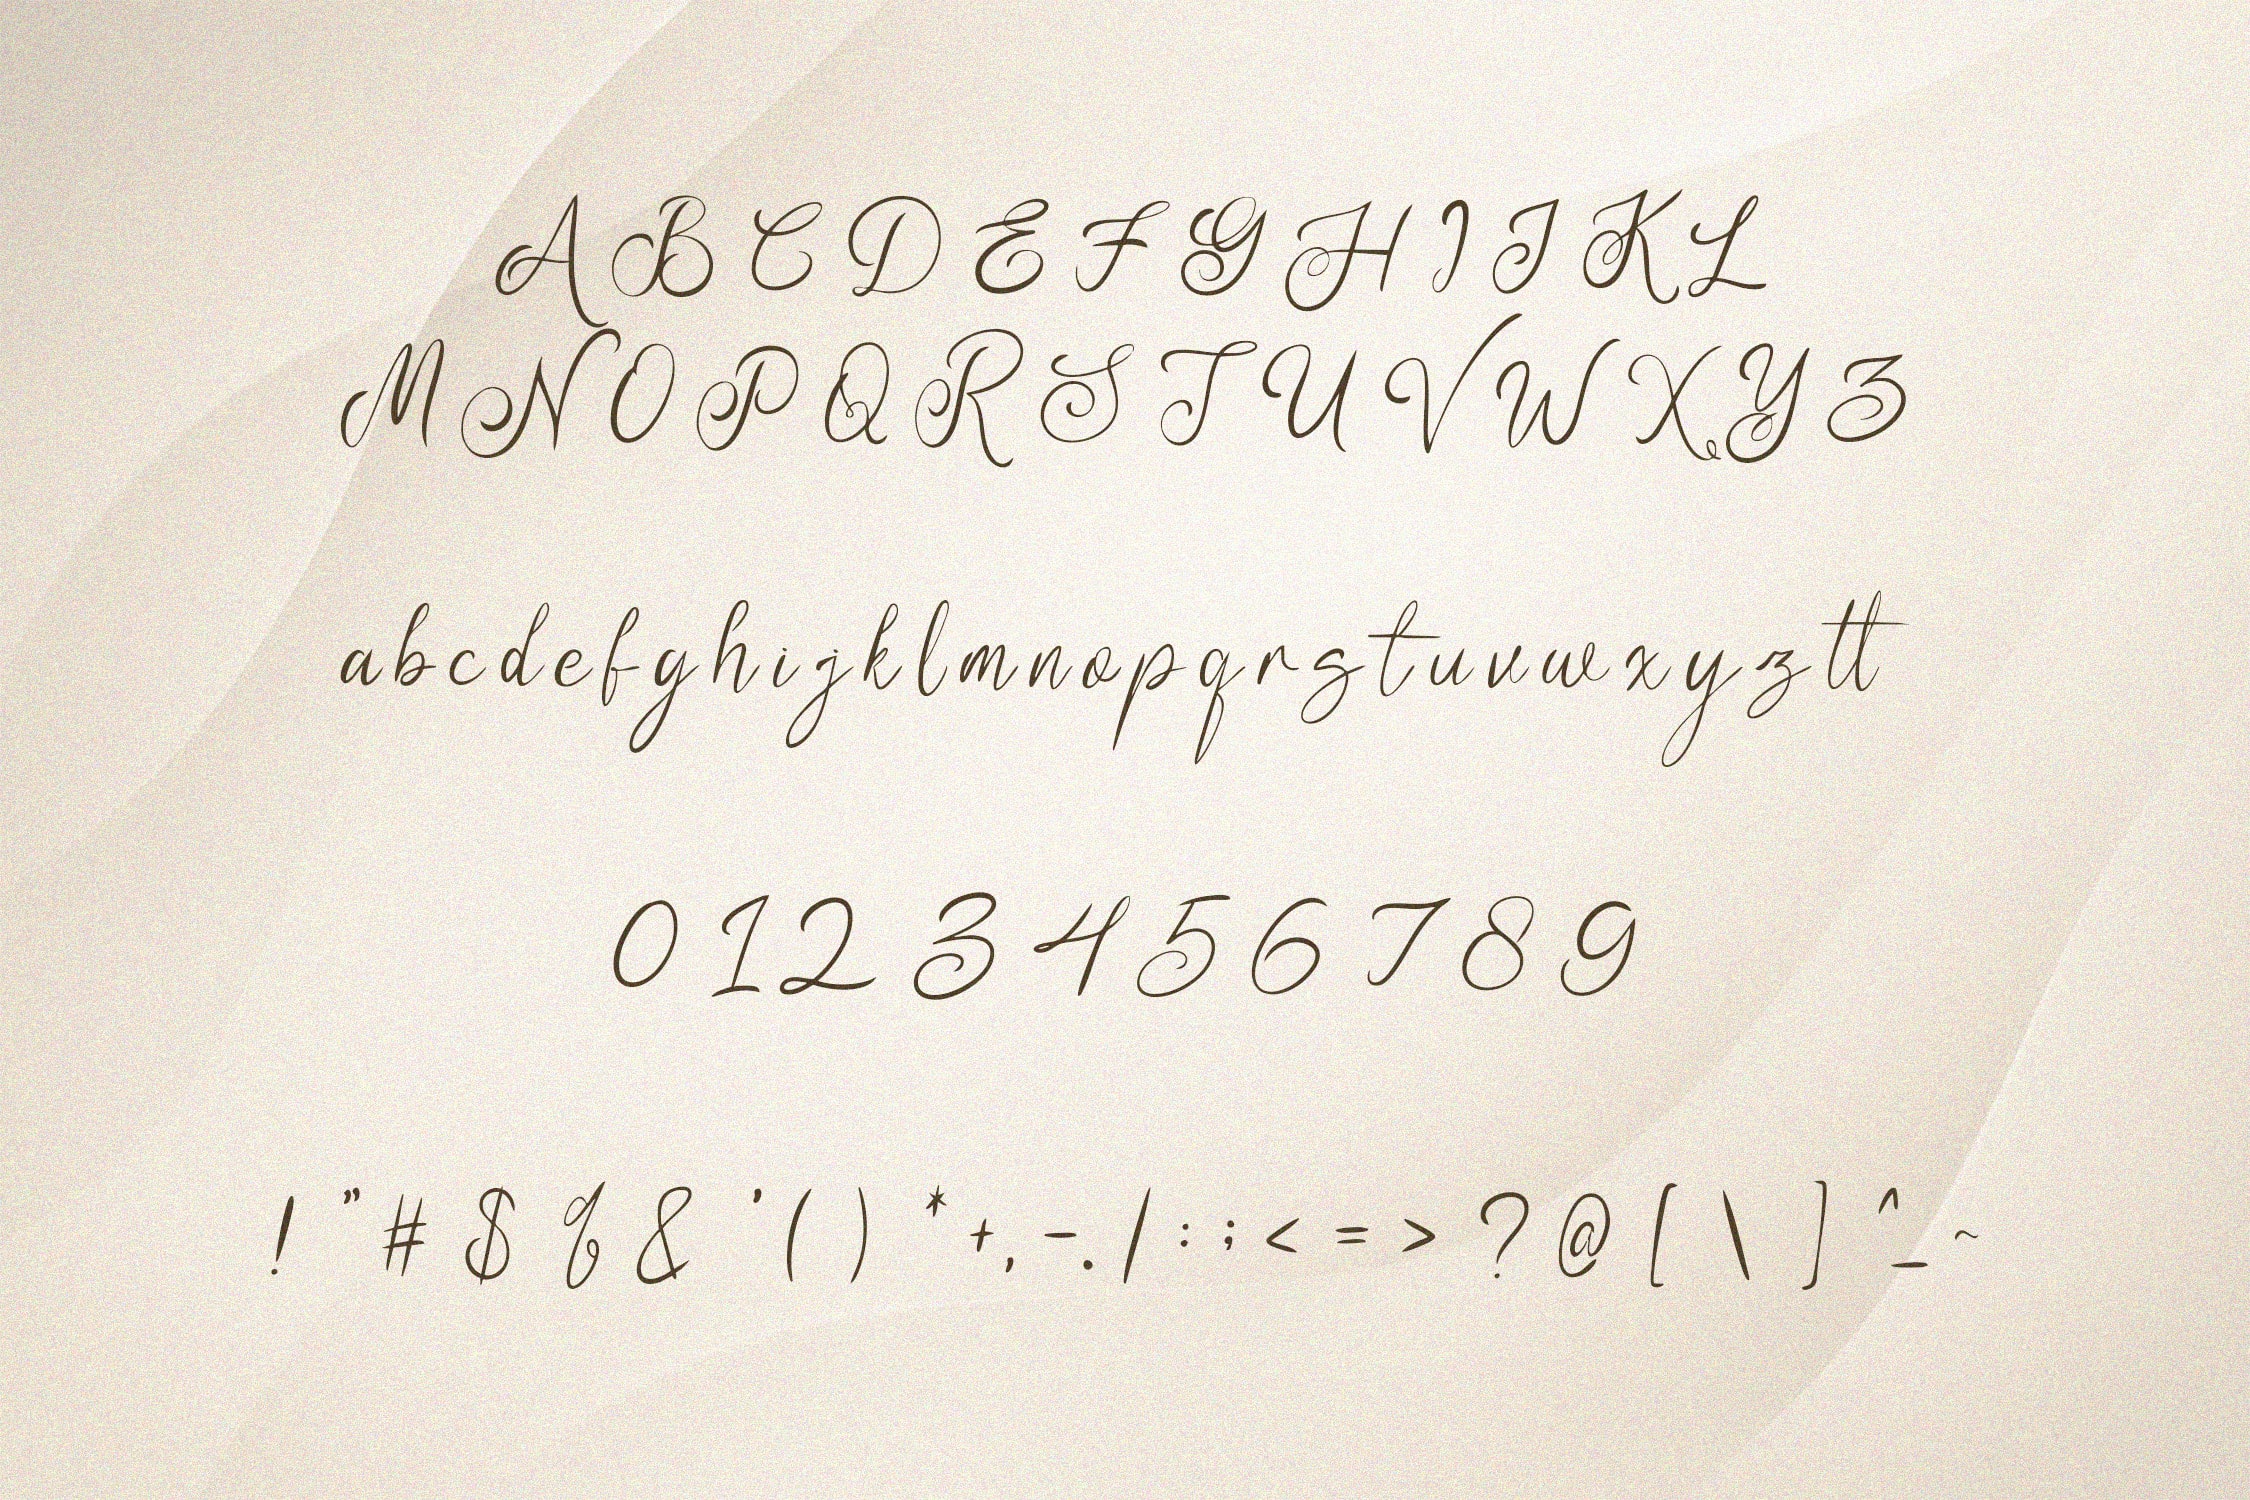 A B C D E F G H I J K L
M N O P Q R S T U V W X Y Z
a b c d e f g h i j k l m n o p q r s t u v w x y z tt
0 1 2 3 4 5 6 7 8 9
! " # $ % & ' ( ) * + , - . / : ; < = > ? @ [ \ ] ^ _ ~